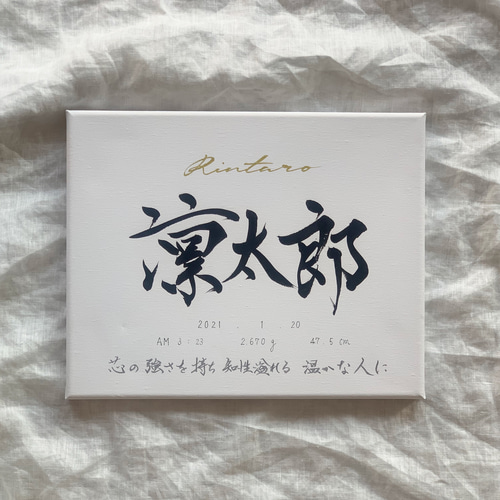 Rintaro
凛太郎
2021 . 1 . 20
AM 3:23 2.670g 47.5cm
芯の強さを持ち 知性溢れる 温かな人に